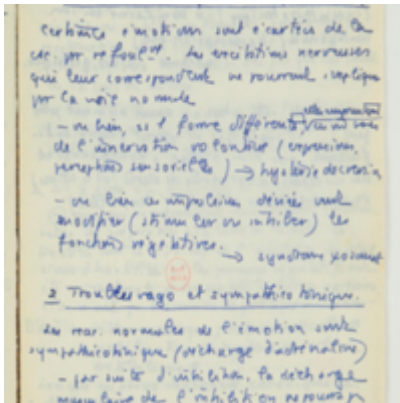 Certaines émotions sont écartées de la
csc. par refoult. Les excitations nerveuses
qui leur correspondent ne pourront s'expliquer
par la voie normale
– ou bien, ss 1 forme différente
de l'innervation volontaire (expression,
perceptions sensorielles) → hystérie de conversion
– ou bien ces impulsions dérivées vont
modifier (stimuler ou inhiber) les
fonctions végétatives.
→ syndrome
2 Troubles vago et sympathicotonique.
Les réac. normales de l'émotion sont
sympathicotonique (décharge d'adrénaline)
– par suite d'inhibition, la décharge
musculaire de l'inhibition ne pourra